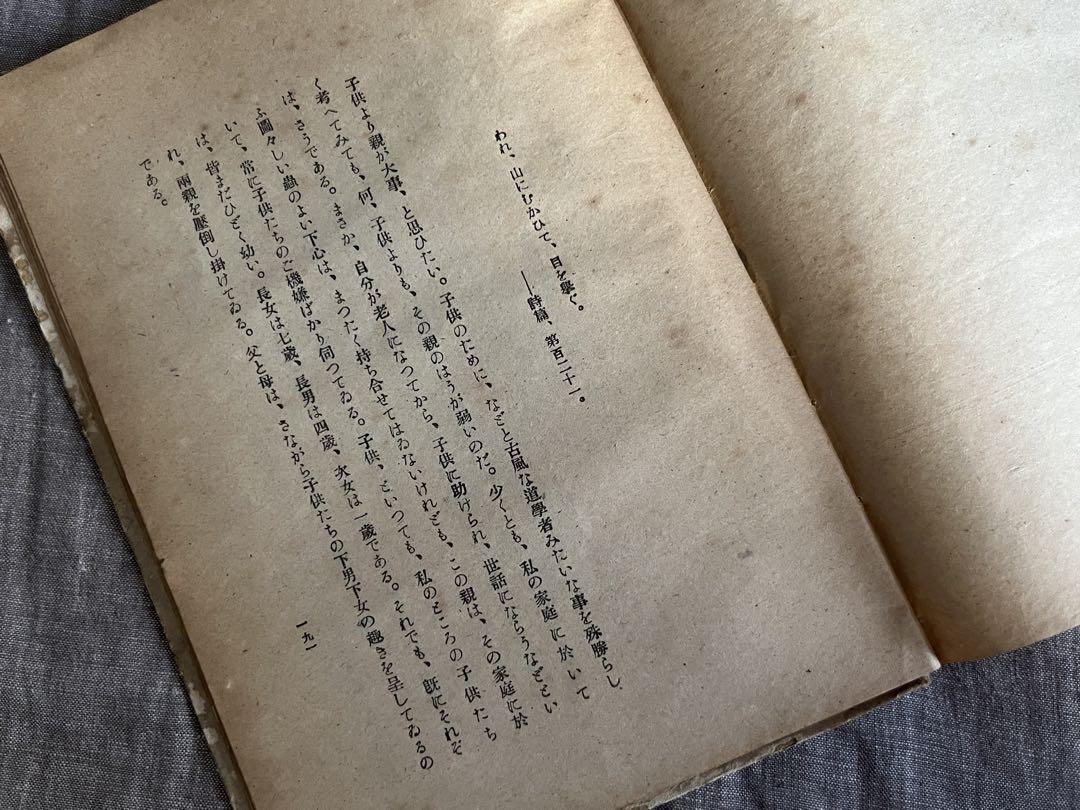 われ、山にむかひて、目を擧ぐ。
――詩篇、第百二十一。
子供より親が大事、と思ひたい。子供のために、などと古風な道學者みたいな事を殊勝らし
く考へてみても、何、子供よりも、その親のはうが弱いのだ。少くとも、私の家庭に於いて
は、さうである。まさか、自分が老人になつてから、子供に助けられ、世話にならうなどとい
ふ圖々しい蟲のよい下心は、まつたく持ち合せてはゐないけれども、この親は、その家庭に於
いて、常に子供たちのご機嫌ばかり伺つてゐる。子供、といつても、私のところの子供たち
は、皆まだひどく幼い。長女は七歳、長男は四歳、次女は一歳である。それでも、既にそれぞ
れ、兩親を壓倒し掛けてゐる。父と母は、さながら子供たちの下男下女の趣きを呈してゐるの
である。
一九一